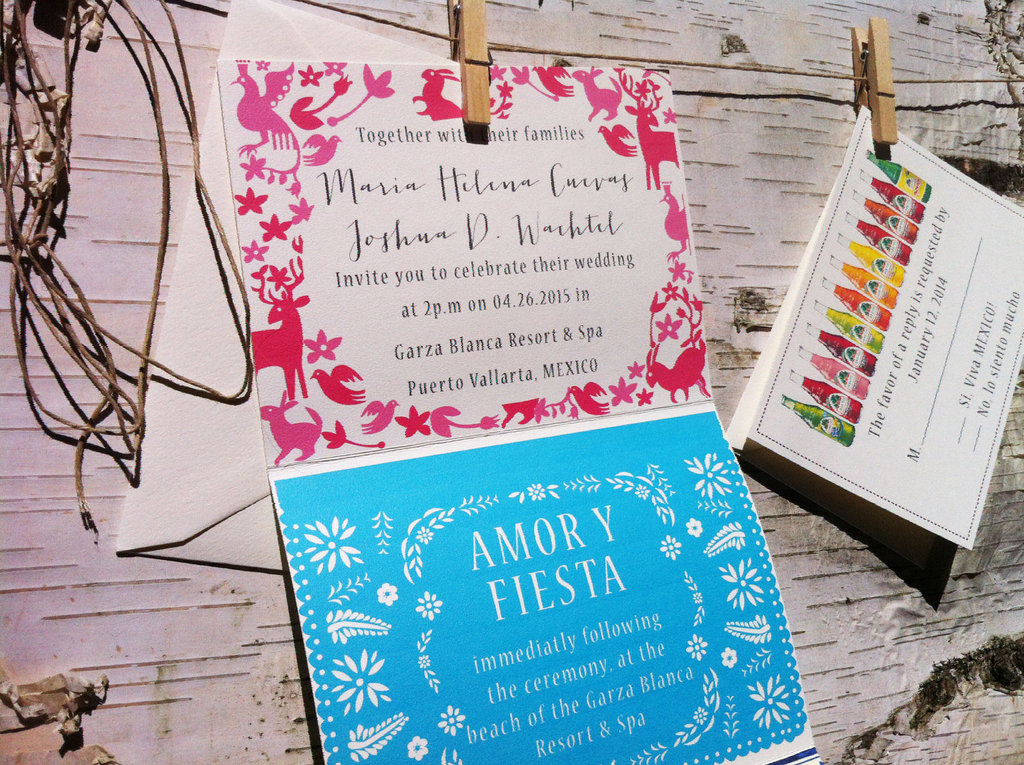 Together with their families
Maria Helena Cuevas
Joshua D. Wachtel
Invite you to celebrate their wedding
at 2p.m on 04.26.2015 in
Garza Blanca Resort & Spa
Puerto Vallarta, MEXICO
AMOR Y
FIESTA
immediatly following
the ceremony, at the
beach of the Garza Blanca
Resort & Spa
The favor of a reply is requested by
January 12, 2014
M
Si. Viva MEXICO!
No. lo siento mucho